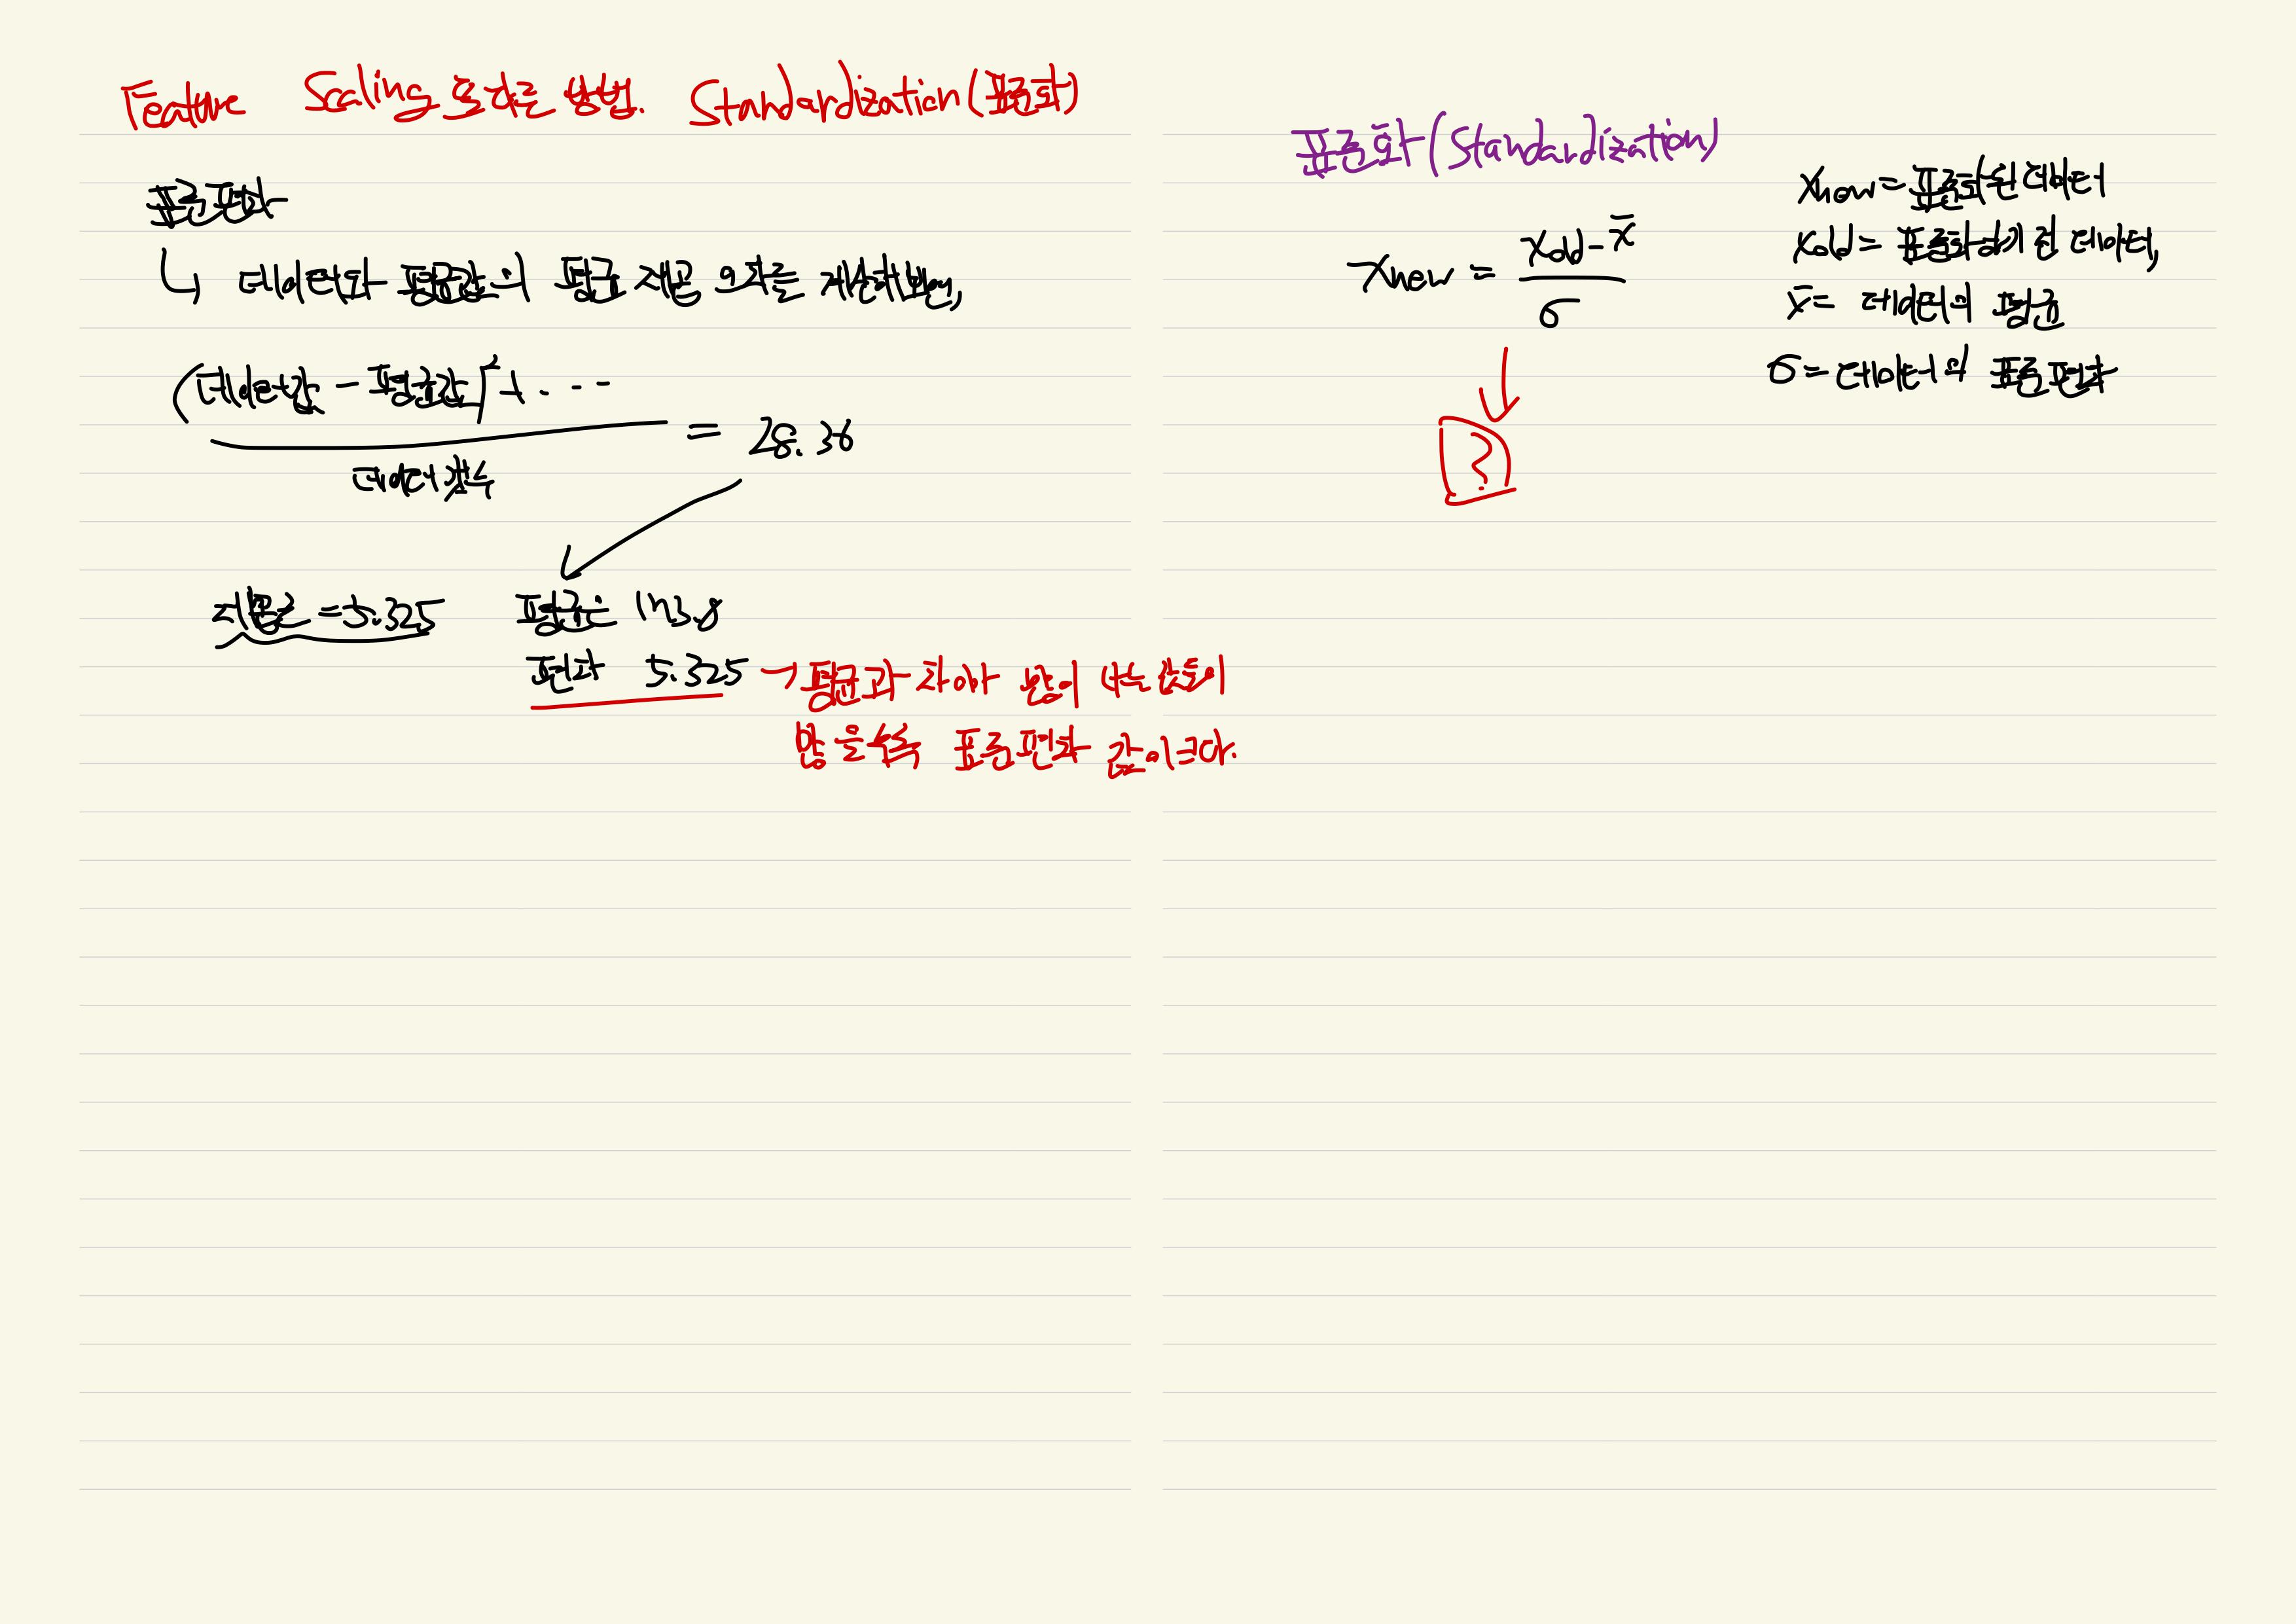 Feature Scaling을 하는 방법. Standardization(표준화)
표준편차
↳ 데이터와 평균값의 평균 제곱 오차를 계산해보면,
(데이터값 - 평균값)² + ...
데이터 갯수
= 28.36
제곱근 = 5.325 평균은 173.8
편차 5.325 → 평균과 차이가 많이 나는 값들이
많을수록 표준편차 값이 크다.
표준화(Standardization)
Xnew = Xold - x̄
σ
?
Xnew = 표준화된 데이터
Xold = 표준화하기 전 데이터,
x̄ = 데이터의 평균
σ = 데이터의 표준편차